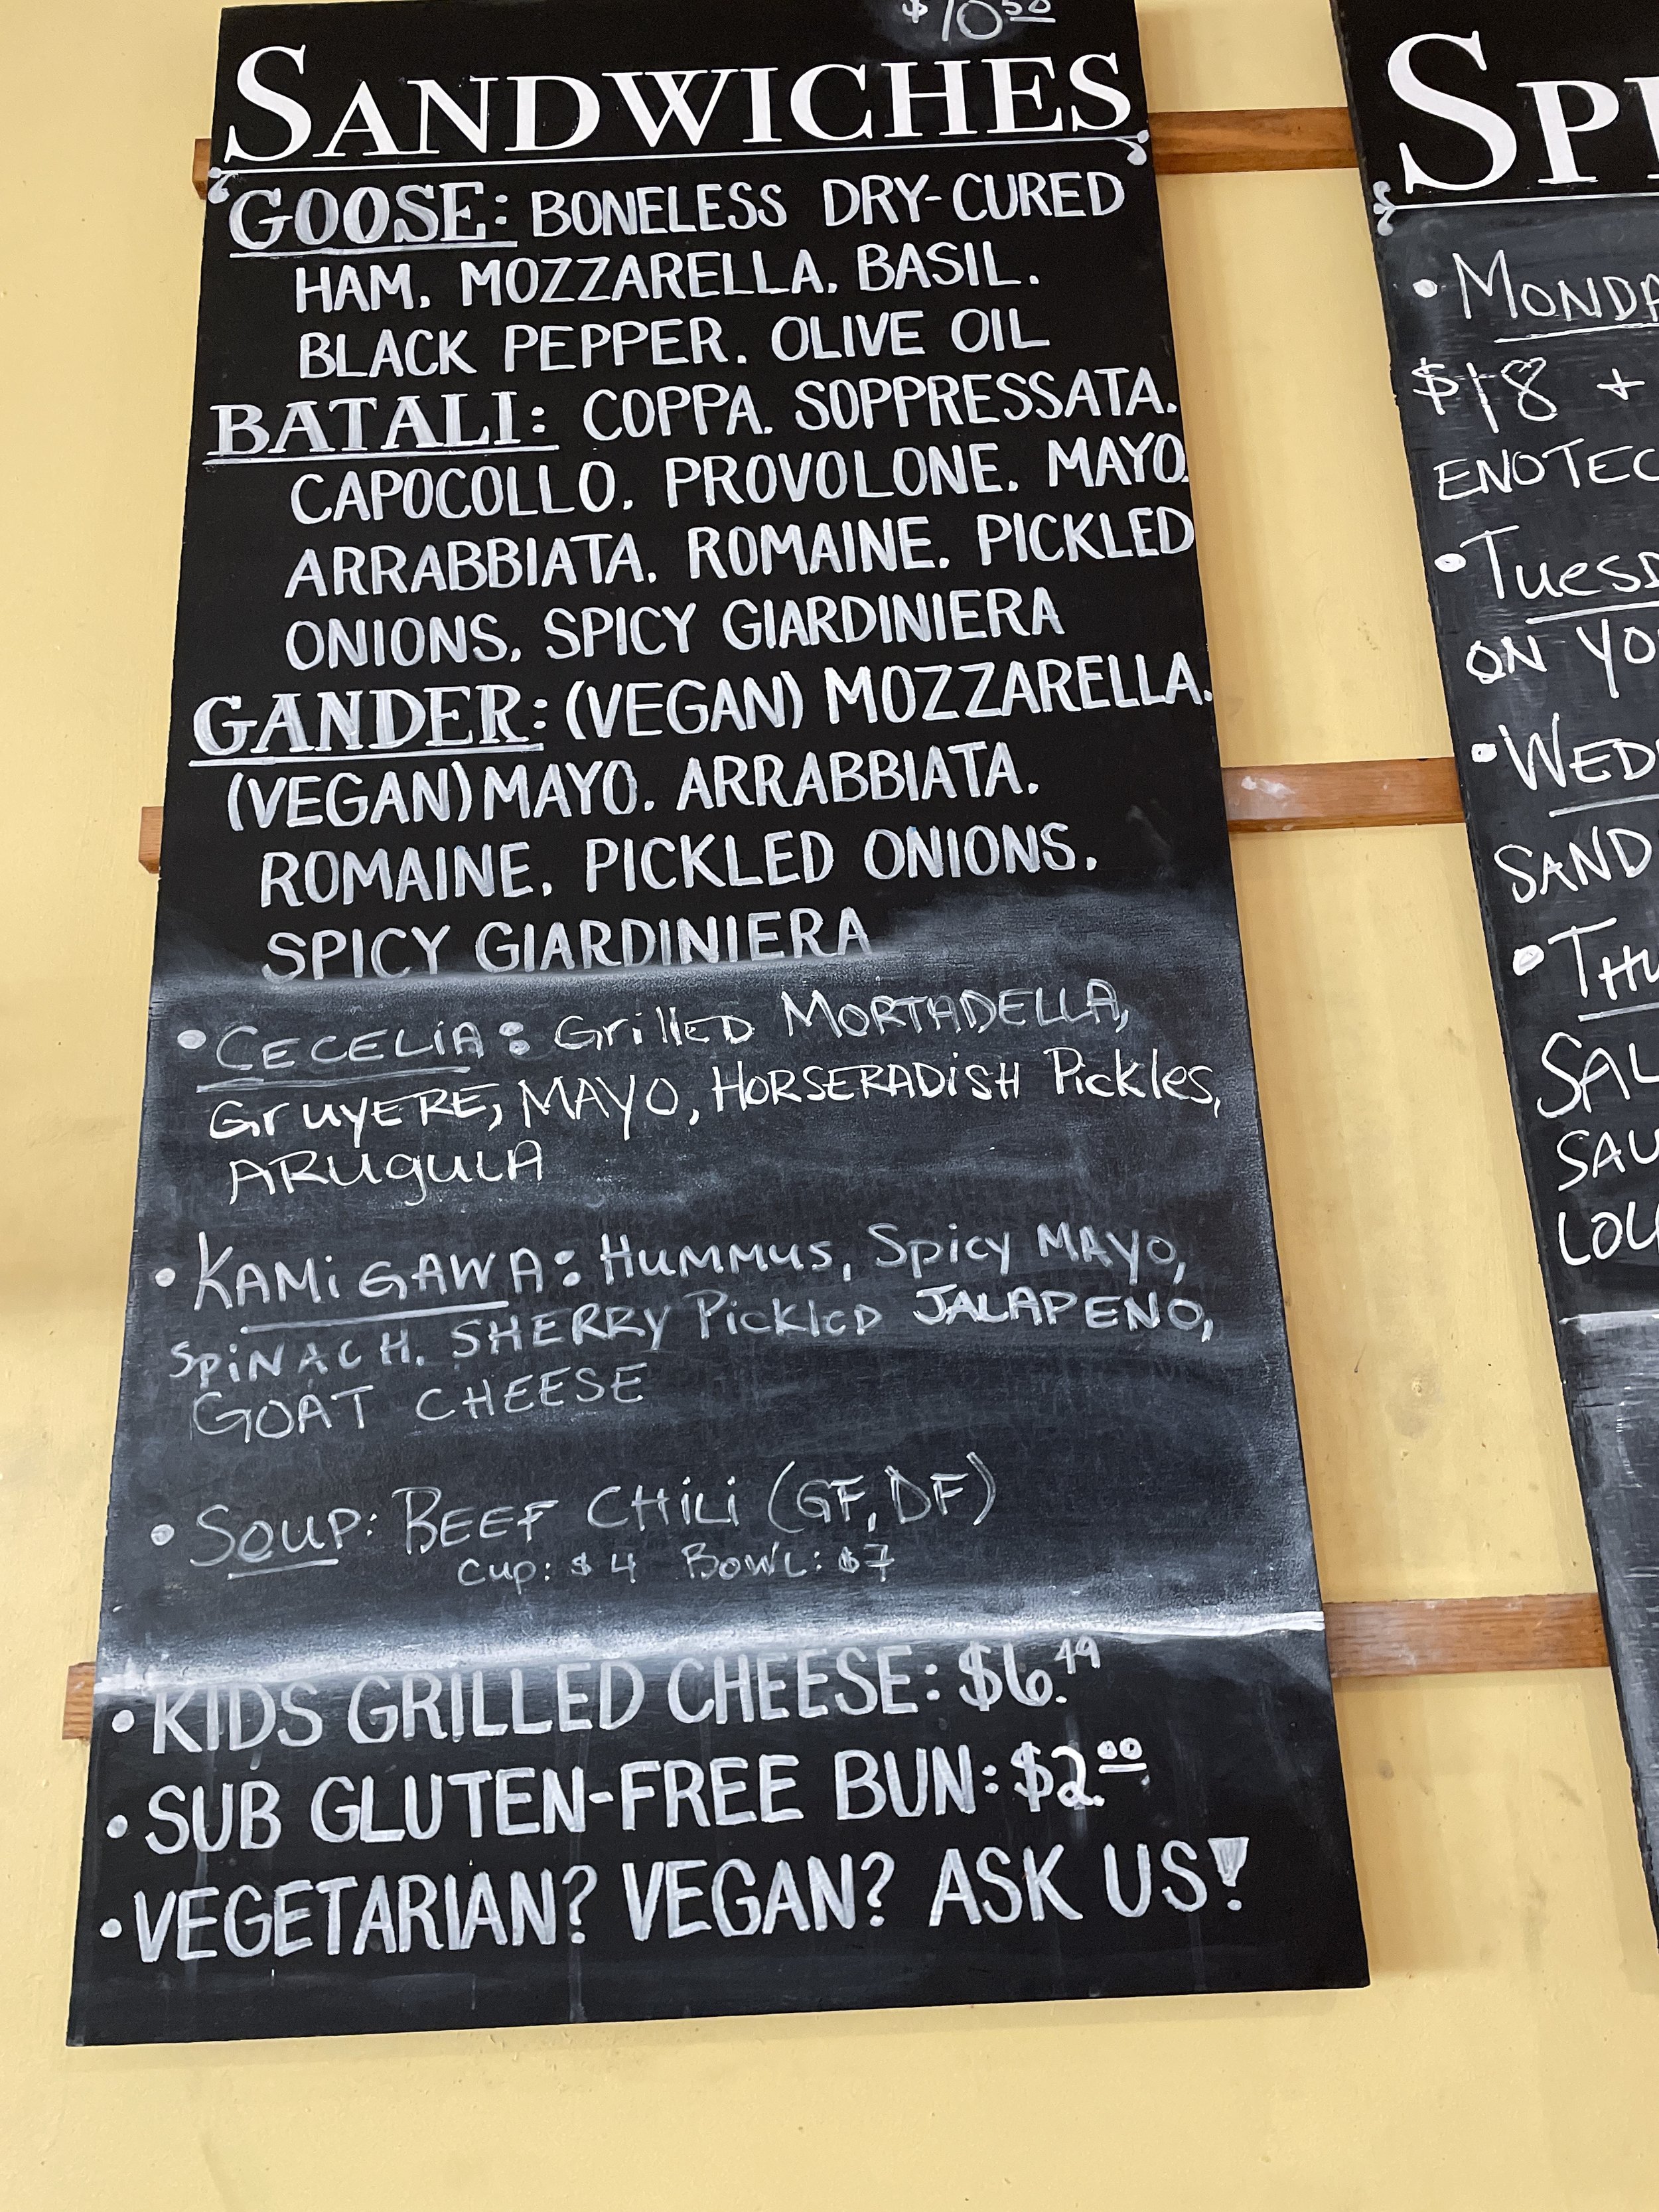 $10.50
SANDWICHES
GOOSE: BONELESS DRY-CURED
HAM. MOZZARELLA. BASIL.
BLACK PEPPER. OLIVE OIL
BATALI: COPPA. SOPPRESSATA.
CAPOCOLLO. PROVOLONE. MAYO.
ARRABBIATA. ROMAINE. PICKLED
ONIONS. SPICY GIARDINIERA
GANDER: (VEGAN) MOZZARELLA.
(VEGAN) MAYO. ARRABBIATA.
ROMAINE. PICKLED ONIONS.
SPICY GIARDINIERA
• CECELIA: GrillED MORTADELLA,
GruyERE, MAYO, HORSERADISH Pickles,
ARUgULA
• KAMIGAWA: HUMMUS, Spicy MAYO,
SPINACH. SHERRY PicklED JALAPENO,
GOAT CHEESE
• SOUP: BEEF CHILI (GF, DF)
Cup: $4 BOWL: $7
• KIDS GRILLED CHEESE: $6.49
• SUB GLUTEN-FREE BUN: $2.00
• VEGETARIAN? VEGAN? ASK US!
SP
• MONDA
$18 +
ENOTEC
• TUESD
ON YO
• WED
SAND
• THU
SAL
SAU
LOU